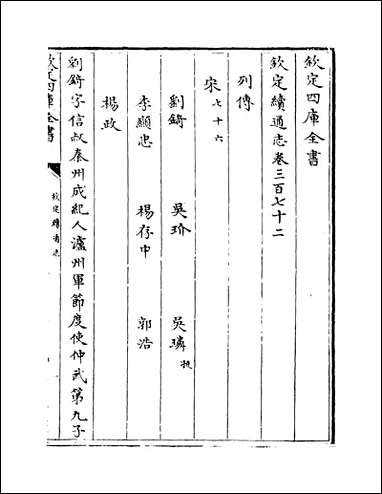 欽定四庫全書
欽定續通志卷三百七十二
列傳
宋七十六
劉錡 吳玠 吳璘挺
李顯忠 楊存中 郭浩
楊政
劉錡字信叔秦州成紀人瀘州軍節度使仲武第九子
欽定四庫全書
欽定續通志